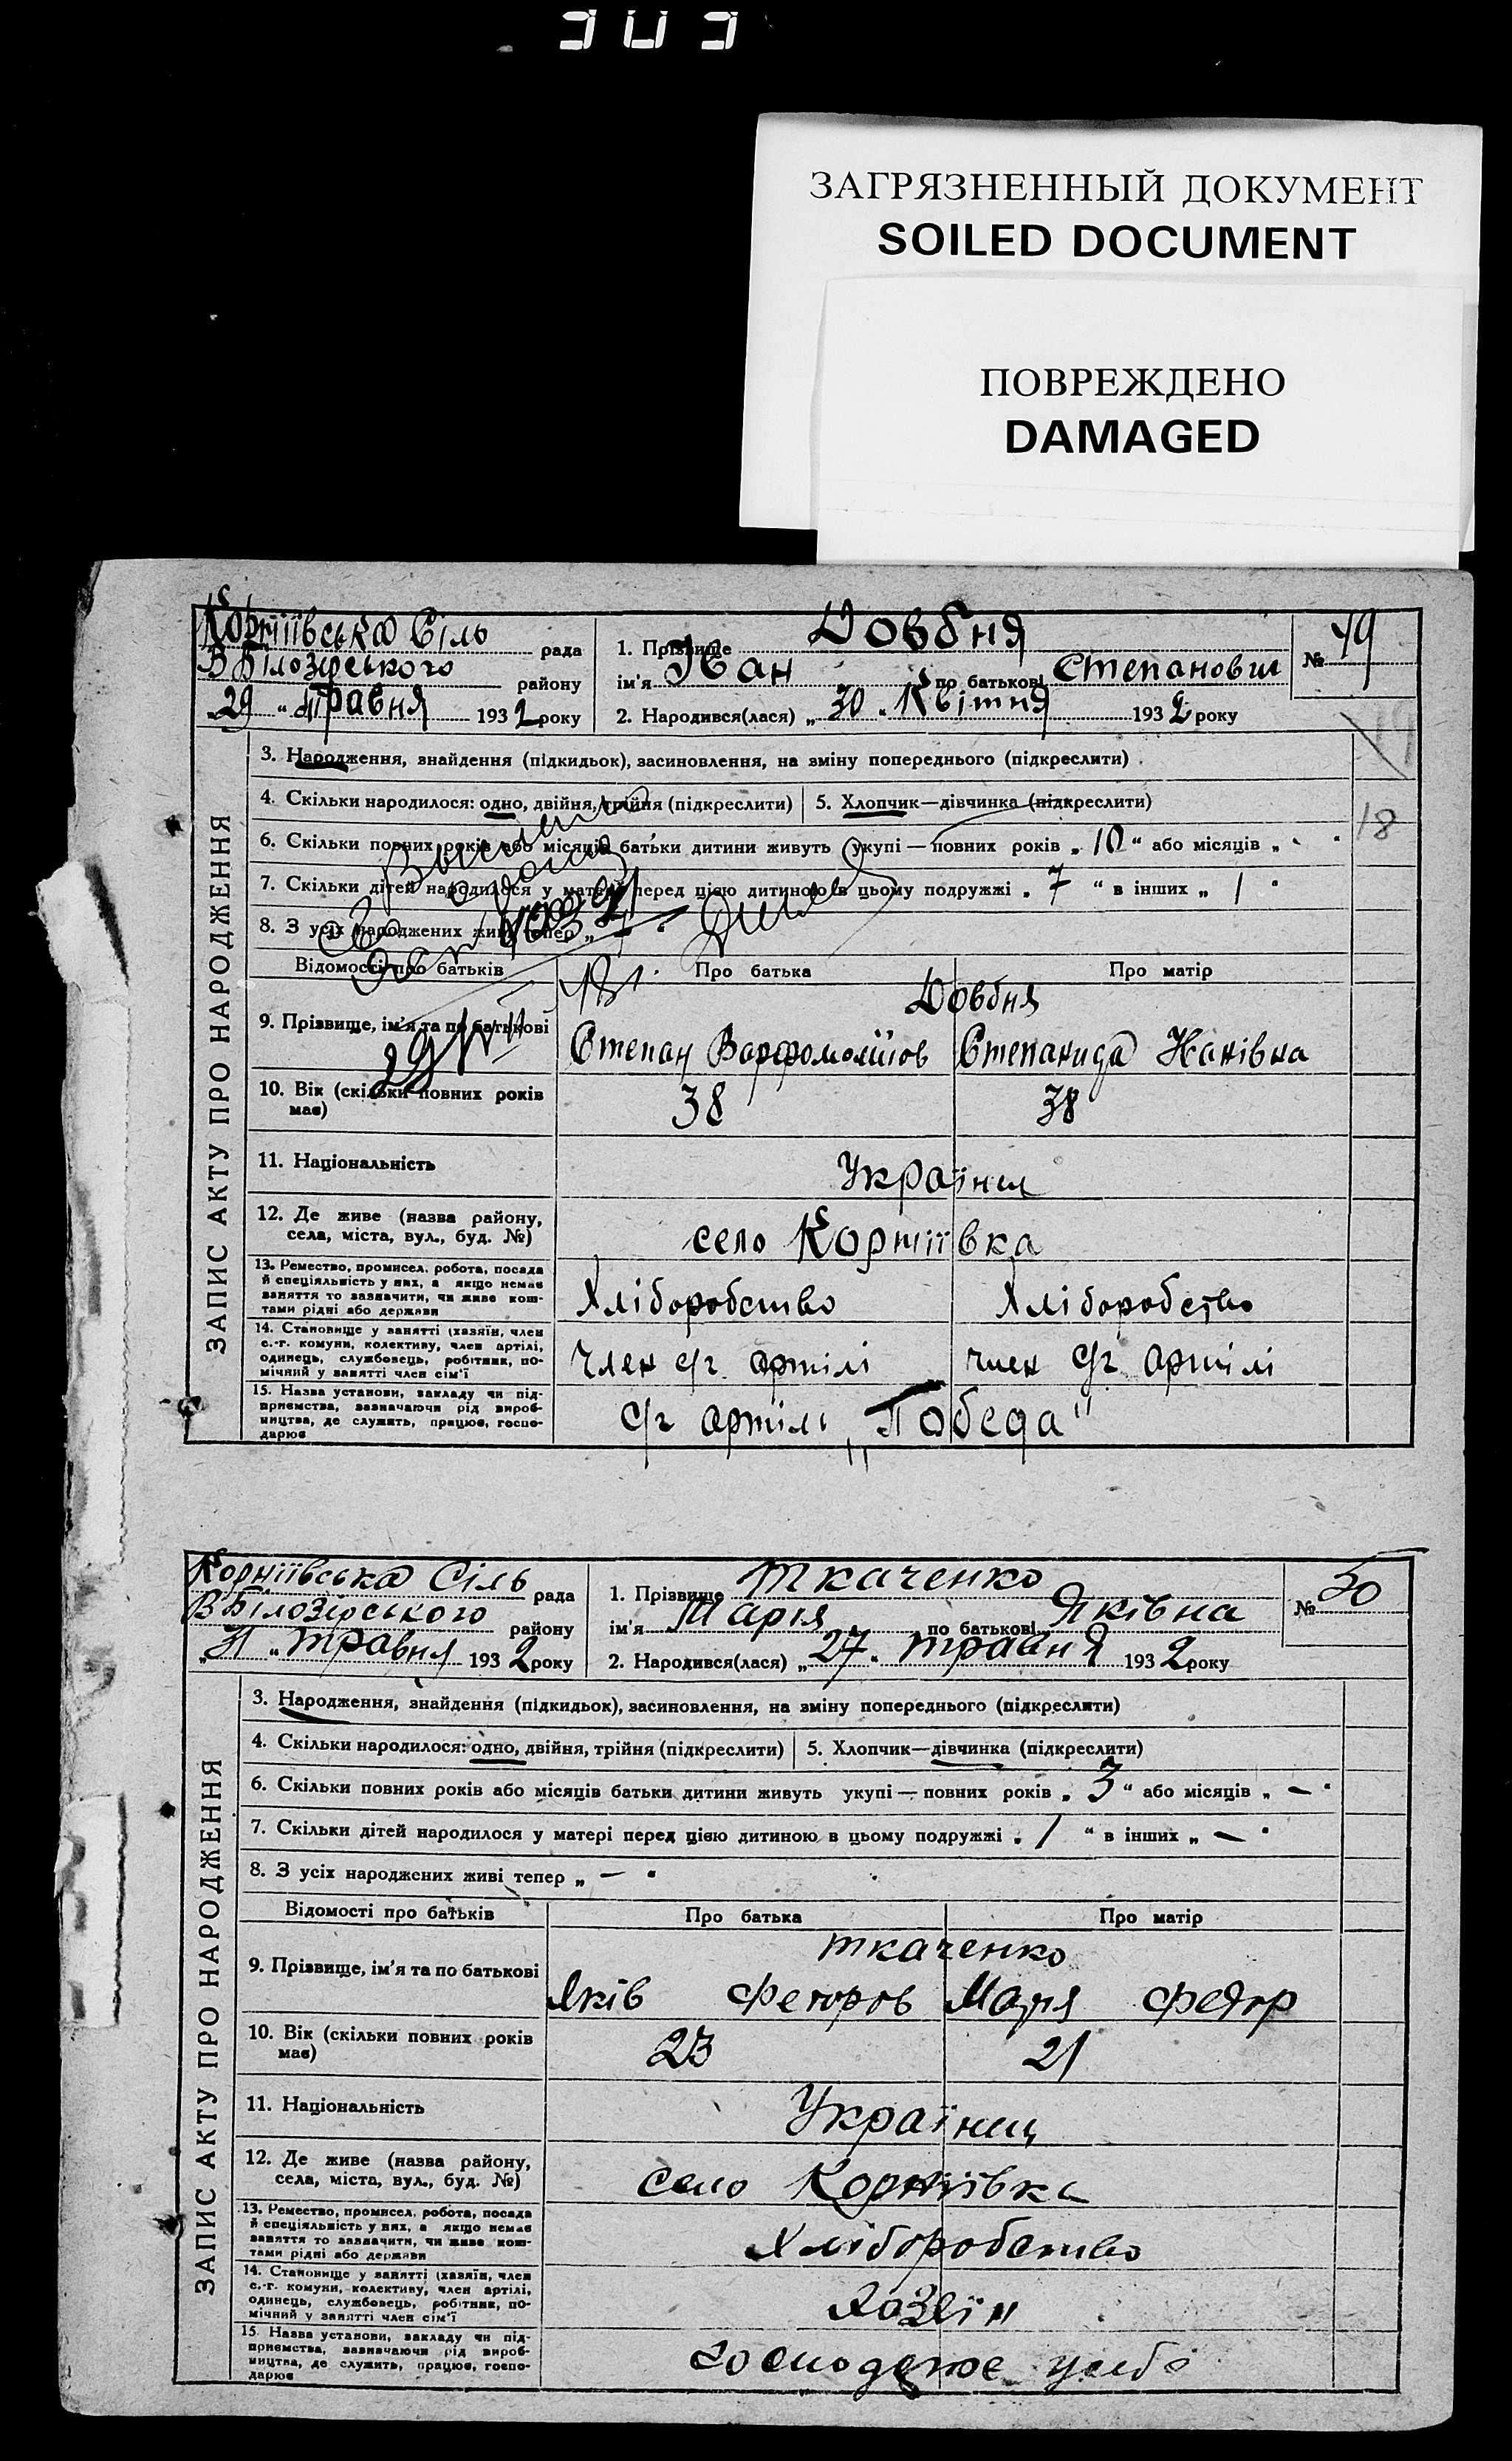 ЗАГРЯЗНЕННЫЙ ДОКУМЕНТ
SOILED DOCUMENT
ПОВРЕЖДЕНО
DAMAGED
Корніївська Сіль рада
В Білозірського району
29 " травня 1932 року
1. Прізвище Довбня
ім'я Іван по батькові Степанович
2. Народився(лася) „ 30 " Квітня 1932 року
№ 49
19
18
ЗАПИС АКТУ ПРО НАРОДЖЕННЯ
3. Народження, знайдення (підкидьок), засиновлення, на зміну попереднього (підкреслити)
4. Скільки народилося: одно, двійня, трійня (підкреслити) 5. Хлопчик—дівчинка (підкреслити)
6. Скільки повних років або місяців батьки дитини живуть укупі — повних років „ 10 " або місяців „ - "
7. Скільки дітей народилося у матері перед цією дитиною в цьому подружжі „ 7 " в інших „ 1 "
8. З усіх народжених живі тепер „
Відомості про батьків Про батька Про матір
Довбня
9. Прізвище, ім'я та по батькові Степан Варфоломійов Степанида
10. Вік (скільки повних років має) 38 38
11. Національність Українці
12. Де живе (назва району, села, міста, вул., буд. №) село Корніївка
13. Ремество, промисел, робота, посада
й спеціяльність у них, а якщо немає
заняття то зазначити, чи живе кош-
тами рідні або держави
Хліборобство Хліборобство
14. Становище у занятті (хазяїн, член
с.-г. комуни, колективу, член артілі,
одинець, службовець, робітник, по-
мічний у занятті член сім'ї
Член с/г артілі член с/г артілі
15. Назва установи, закладу чи під-
приємства, зазначаючи рід вироб-
ництва, де служить, працює, госпо-
дарює
с/г артілі „Победа"
Корніївська Сіль рада
В Білозірського району
„ 31 " травня 1932 року
1. Прізвище Ткаченко
ім'я Марія по батькові Яківна
2. Народився(лася) „ 27 " травня 1932 року
№ 50
ЗАПИС АКТУ ПРО НАРОДЖЕННЯ
3. Народження, знайдення (підкидьок), засиновлення, на зміну попереднього (підкреслити)
4. Скільки народилося: одно, двійня, трійня (підкреслити) 5. Хлопчик—дівчинка (підкреслити)
6. Скільки повних років або місяців батьки дитини живуть укупі — повних років „ 3 " або місяців „ — "
7. Скільки дітей народилося у матері перед цією дитиною в цьому подружжі „ 1 " в інших „ — "
8. З усіх народжених живі тепер „ — "
Відомості про батьків Про батька Про матір
Ткаченко
9. Прізвище, ім'я та по батькові Яків Федоров Марія Федор
10. Вік (скільки повних років має) 23 21
11. Національність Українці
12. Де живе (назва району, села, міста, вул., буд. №) село Корніївка
13. Ремество, промисел, робота, посада
й спеціяльність у них, а якщо немає
заняття то зазначити, чи живе кош-
тами рідні або держави
Хліборобство
14. Становище у занятті (хазяїн, член
с.-г. комуни, колективу, член артілі,
одинець, службовець, робітник, по-
мічний у занятті член сім'ї
Хазяїн
15. Назва установи, закладу чи під-
приємства, зазначаючи рід вироб-
ництва, де служить, працює, госпо-
дарює